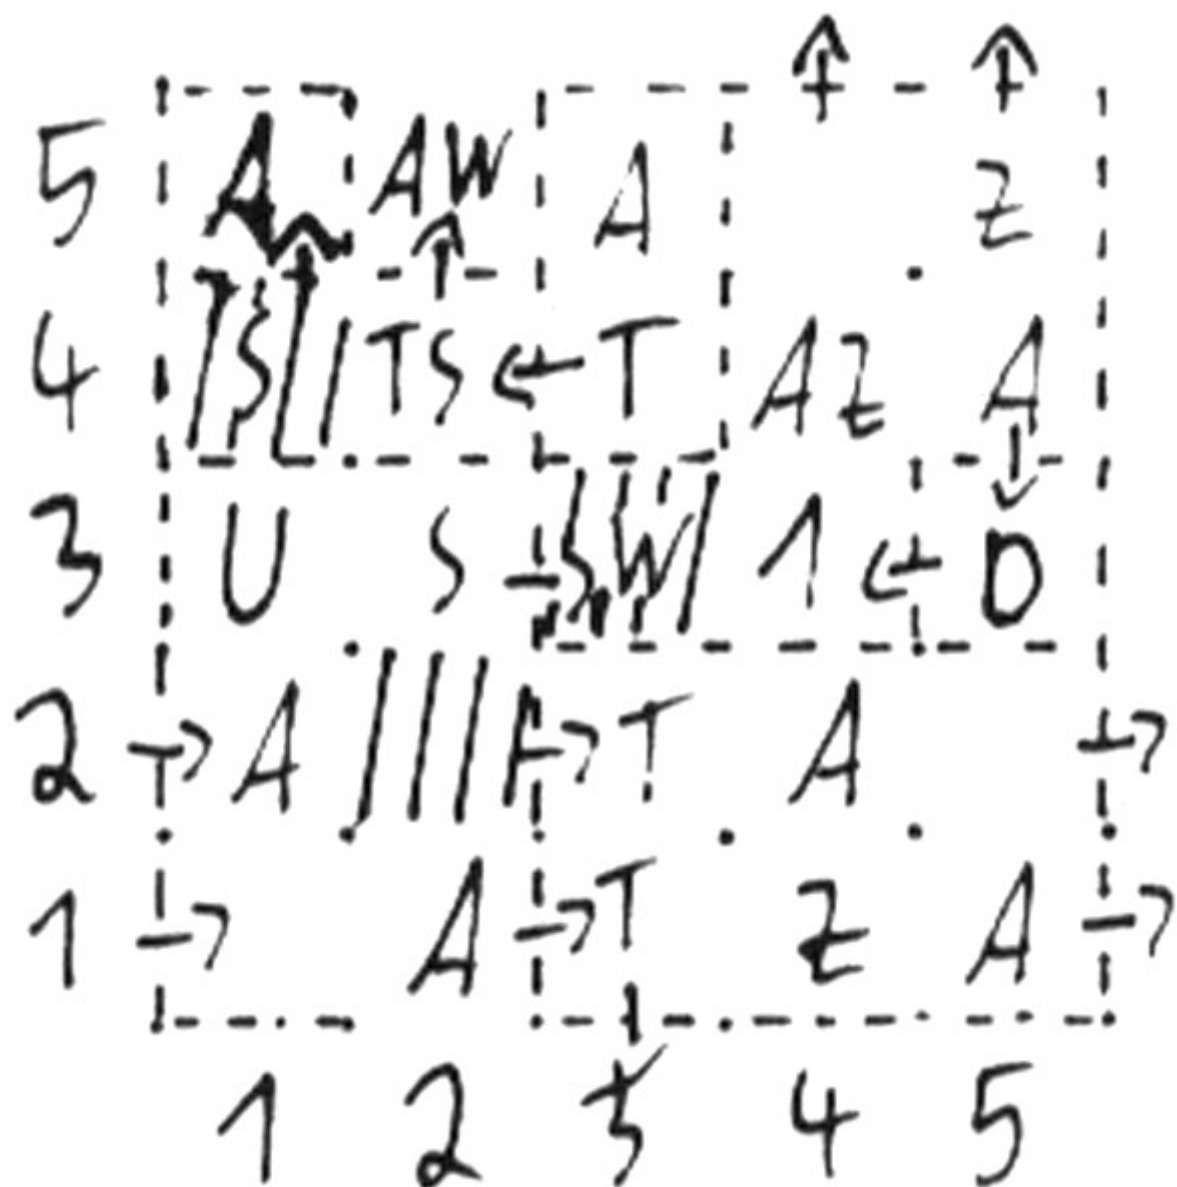 5 A AW A Z
4 S TS T AZ A
3 U S SW 1 D
2 A T A
1 A T Z A
1 2 3 4 5